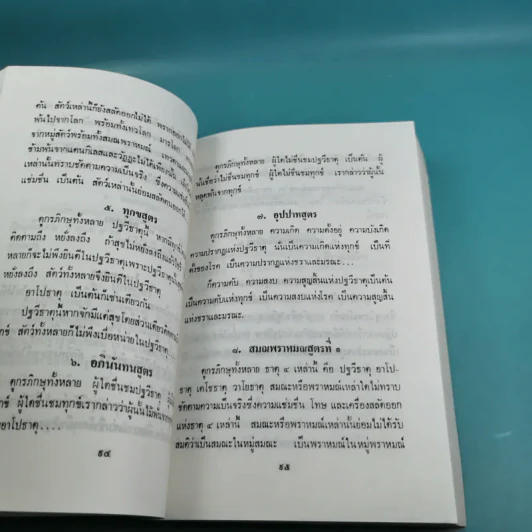 คัน สัตว์เหล่านี้ก็ยังสลัดออกไม่ได้
พ้นไปจากโลก พร้อมทั้งเทวโลก มารโลก
จากหมู่สัตว์พร้อมทั้งสมณพราหมณ์
ข้ามพ้นจากแดนกิเลสและวัฏฏะไม่ได้
เหล่านั้นทราบชัดตามความเป็นจริง ซึ่งความ
แช่มชื่น เป็นต้น สัตว์เหล่านั้นย่อมสลัดออก
๕. ทุกขสูตร
ดูกรภิกษุทั้งหลาย ปฐวีธาตุนี้ หากมี
ติดตามถึง หยั่งลงถึง ถ้าสุขไม่หยั่งลงถึงแล้วไซร้
หลายก็จะไม่พึงยินดีในปฐวีธาตุเพราะปฐวีธาตุ
หยั่งลงถึง สัตว์ทั้งหลายจึงยินดีในปฐวีธาตุ
อาโปธาตุ เป็นต้นก็เช่นเดียวกัน
ปฐวีธาตุนี้หากจักมีแต่สุขโดยส่วนเดียว
ทุกข์ สัตว์ทั้งหลายก็ไม่พึงเบื่อหน่ายในปฐวีธาตุ
๖. อภินันทนสูตร
ดูกรภิกษุทั้งหลาย ผู้ใดชื่นชมปฐวีธาตุ
ผู้ใดชื่นชมทุกข์เรากล่าวว่าผู้นั้นไม่
อาโปธาตุ....
๙๔
ดูกรภิกษุทั้งหลาย ผู้ใดไม่ชื่นชมปฐวีธาตุ เป็นต้น ผู้
นั้นชื่อว่าไม่ชื่นชมทุกข์ ผู้ใดไม่ชื่นชมทุกข์ เรากล่าวว่าผู้นั้น
หลุดพ้นจากทุกข์
๗. อุปปาทสูตร
ดูกรภิกษุทั้งหลาย ความเกิด ความตั้งอยู่ ความบังเกิด
ความปรากฏแห่งปฐวีธาตุ นั่นเป็นความเกิดแห่งทุกข์ เป็นที่
ตั้งของโรค เป็นความปรากฏแห่งชราและมรณะ...
ก็ความดับ ความสงบ ความสูญสิ้นแห่งปฐวีธาตุเป็นต้น
เป็นความดับแห่งทุกข์ เป็นความสงบแห่งโรค เป็นความสูญสิ้น
แห่งชราและมรณะ.
๘. สมณพราหมณสูตรที่ ๑
ดูกรภิกษุทั้งหลาย ธาตุ ๔ เหล่านี้ คือ ปฐวีธาตุ อาโป-
ธาตุ เตโชธาตุ วาโยธาตุ สมณะหรือพราหมณ์เหล่าใดไม่ทราบ
ชัดตามความเป็นจริงซึ่งความแช่มชื่น โทษ และเครื่องสลัดออก
แห่งธาตุ ๔ เหล่านี้ สมณะหรือพราหมณ์เหล่านั้นย่อมไม่ได้รับ
สมมติว่าเป็นสมณะในหมู่สมณะ เป็นพราหมณ์ในหมู่พราหมณ์
๙๕